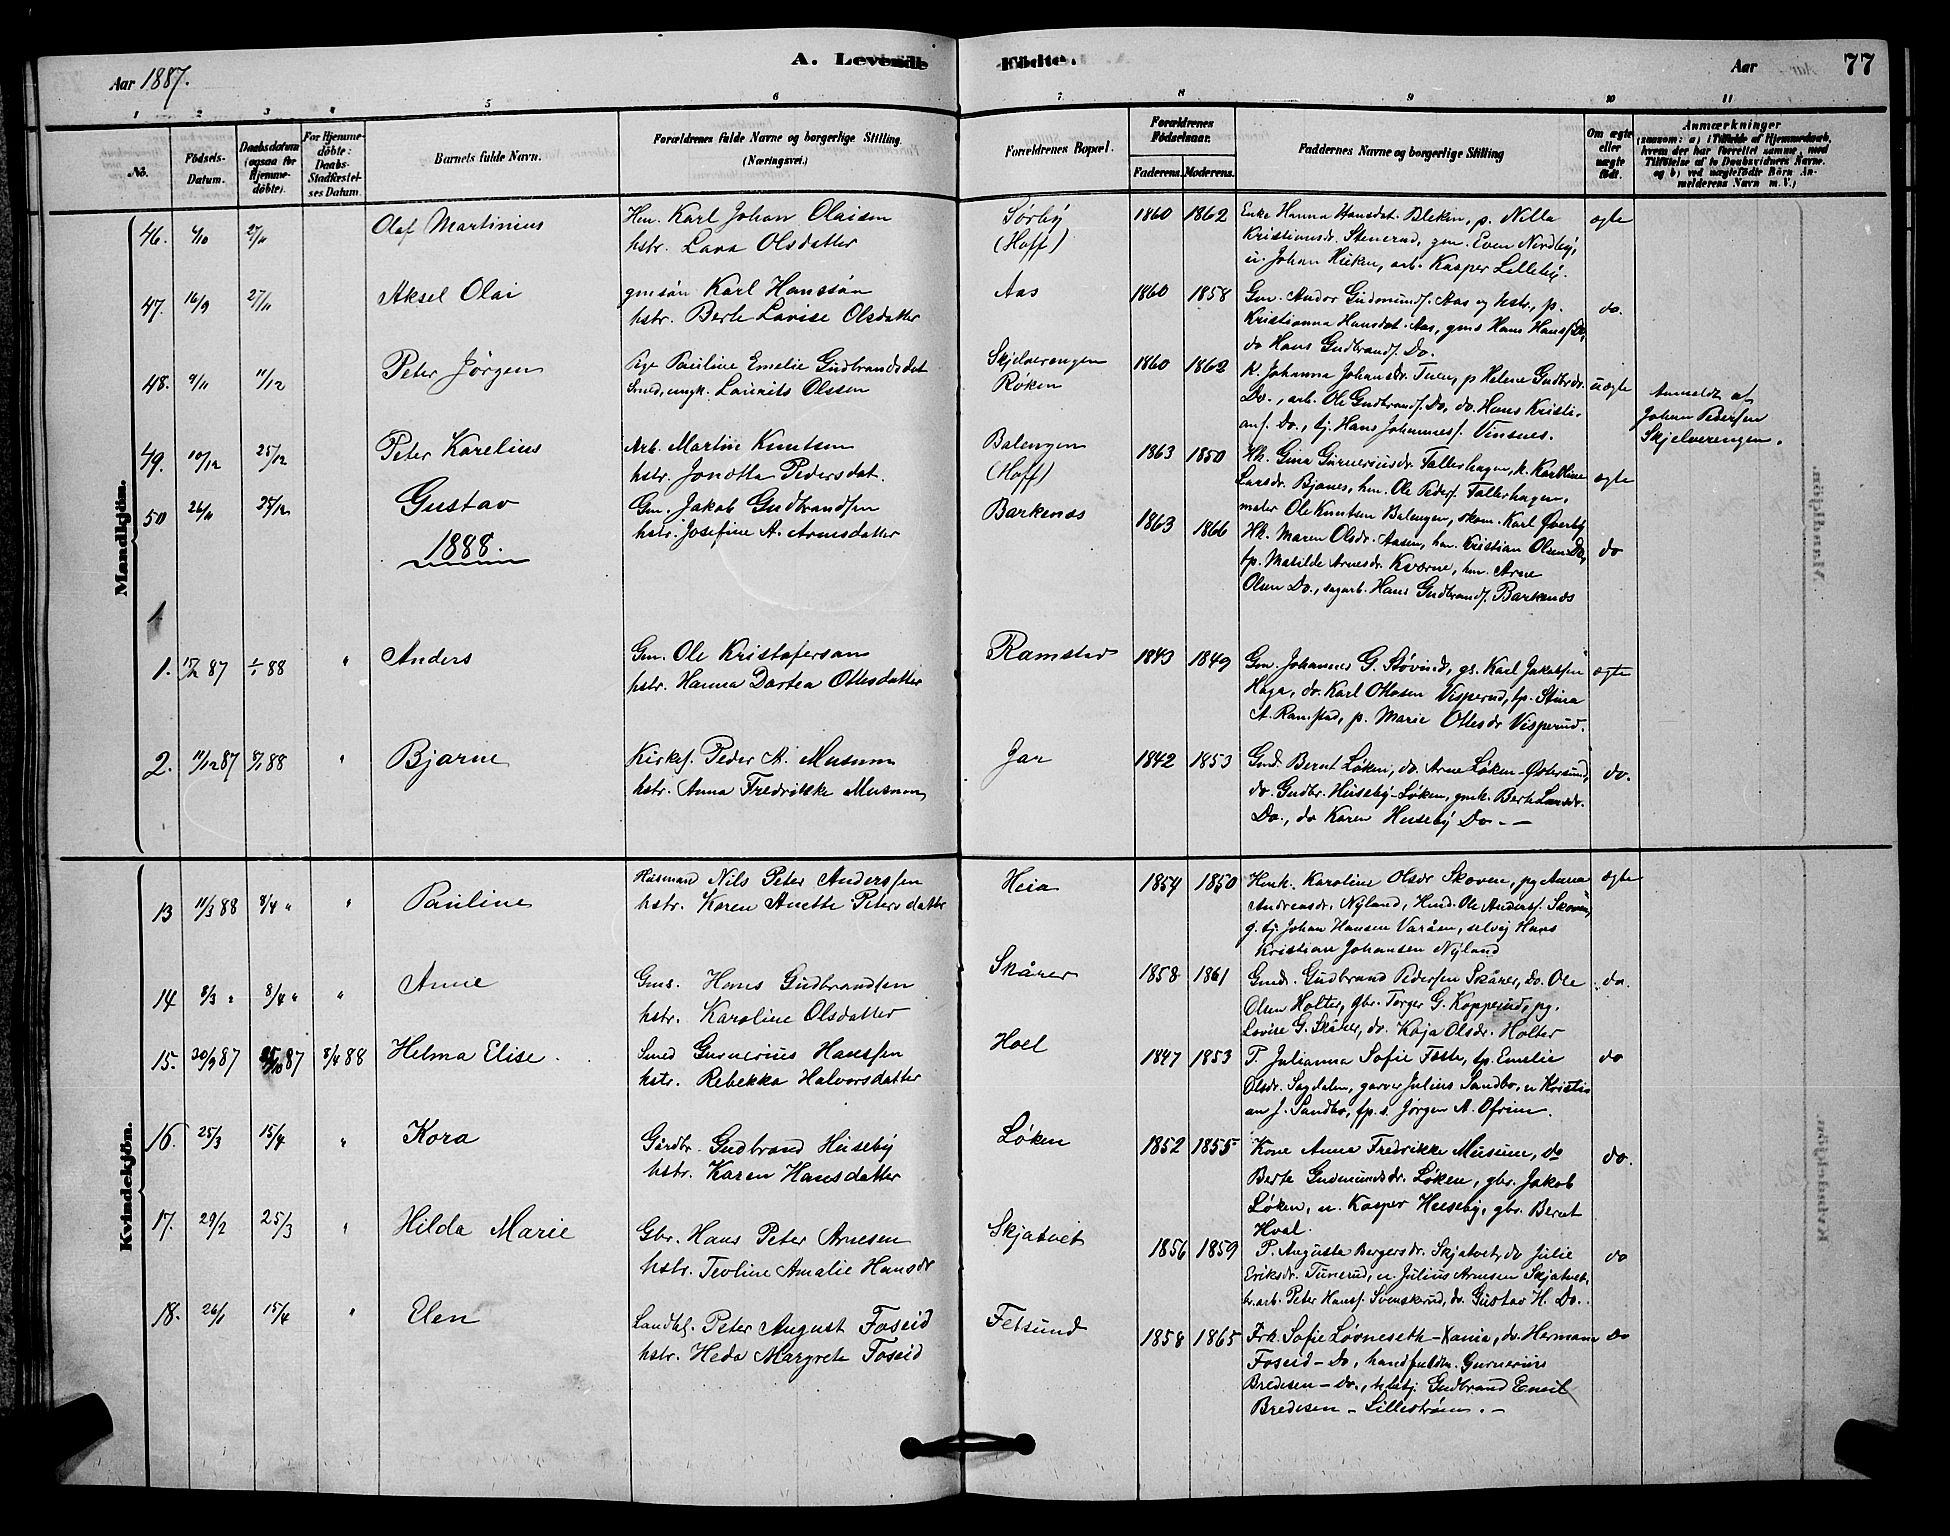 Aar 1887.
A. Levende
Fødte.
Aar
77
1 2 3 4 5 6 7 8 9 10 11
No.
Fødsels-Datum.
Daabsdatum (ogsaa for Hjemmedöbte).
For Hjemmedöbte: Daabs-Stadfæstelses Datum.
Barnets fulde Navn.
Forældrenes fulde Navne og borgerlige Stilling. (Næringsvei.)
Forældrenes Bopæl.
Forældrenes Födselsaar.
Faderens. Moderens.
Faddernes Navne og borgerlige Stilling
Om ægte eller uægte födt.
Anmærkninger
(saasom: a) i Tilfælde af Hjemmedaab, hvem der har forrettet samme, med Tilföielse af to Daabsvidners Navne. og b) ved uægtefödte Börn Anmelderens Navn m. V.)
Mandkjön.
46. 4/10 27/11 Olaf Martinius
Hm. Karl Johan Olaisen
hstr. Lava Olsdatter
Sørby
(Hoff)
1860 1862
Enke Hanna Hansdat. Blekin, p. Nella
Kristiansdr. Stenerud, gm. Even Nordby,
u. Johan Hieken, arb. Kasper Lilleby.
ægte
47. 16/9 27/11 Aksel Olai
gmsøn Karl Hanssøn
hstr. Berte Lovise Olsdatter
Aas
1860 1858
Gm. Andor Gudmunds. Aas og hstr., p.
Kristianna Hansdat. Aas, gms Hans Hans. Do,
do Hans Gudbrands. Do.
do.
48. 9/11 11/12 Peter Jørgen
Pige Pauline Emelie Gudbrandsdat
Smed, ungk. Laurits Olssen
Skjelverengen
Røken
1860 1862
K. Johanna Johansdr. Tuen, p Helene Gudbrdr.
Do., arb. Ole Gudbrands. Do, do. Hans Kristi-
ans. Do., tj. Hans Johannes. Vinsnes.
uægte
Anmeldt af
Johan Pedersen
Skjelverengen.
49. 10/12 25/12 Peter Karelius
Arb. Martin Knutsen
hstr. Jonetta Pedersdat.
Balengen
(Hoff)
1863 1850
Hk. Gina Gurneriusdr. Tallershagen, k. Karoline
Larsdr. Bjanes, hm. Ole Peders. Tallerhagen,
maler Ole Knutsen Balengen, skom. Karl Øverby
ægte
50 26/11 25/12 Gustav
Gm. Jakob Gudbrandsen
hstr. Josefine A. Arnesdatter
Barkenes
1863 1866
Hk. Maren Olsdr. Aasen, hm. Kristian Olsen Do,
tp. Matilde Arnesdr. Kværne, hm. Arne
Olsen Do., sagarb. Hans Gudbrands. Barkenes
do
1888.
1. 87 1/1 88 " Anders
Gm. Ole Kristofersen
hstr. Hanna Dortea Ottesdatter
Ramstad
1843 1849
Gm. Johannes G. Støvind, gs. Karl Jakobsen
Haga, do. Karl Ottesen Visperud, tp. Stina
A. Ramstad, p. Marie Ottesdr Visperud.
ægte
2. 11/12 87 8/1 88 " Bjarne
Kirkes. Peder A. Musum
hstr. Anna Fredrikke Musum
Jar
1842 1853
Gmd. Bernt Løken, do. Arne Løken-Østersund,
do. Gudbr. Huseby-Løken, gmk. Berte Larsdr.
Do., do Karen Huseby Do. —
do.
Kvindekjön.
13 11/3 88 8/4 " " Pauline
Husmand Nils Peter Anderssen
hstr. Karen Anette Petersdatter
Heia
1854 1850
Hmk. Karoline Olsdr Skoven, pg Anna
Andreasdr. Nyland, Hmd. Ole Anders. Skoven,
g. tj. Johan Hansen Varåen, selvej Hans
Kristian Johansen Nyland
ægte
14 8/3 " 8/4 " " Anne
Gms. Hans Gudbrandsen
hstr. Karoline Olsdatter
Skårer
1858 1861
Gmd. Gudbrand Pedersen Skårer, do. Ole
Olsen Holter, gbr. Torger G. Kopperud, pg.
Lovise G. Skårer, do. Kaja Olsdr. Holter
do.
15. 20/9 87 25/10 87 8/4 88 Helma Elise.
Smed Gurnerius Hanssen
hstr. Rebekka Halvorsdatter
Hoel
1847 1853
P. Julianna Sofie Toste, tp. Emelie
Olsdr. Sagdalen, garver Julius Sandbo, u Kristi-
an J. Sandbo, fp. s. Jørgen A. Ofrim.
do
16. 25/3 15/4 " Kora
Gårdbr. Gudbrand Huseby
hstr. Karen Hansdatter
Løken
1852 1855
Kone Anna Fredrikke Musum, do
Berte Gudmundsdr. Løken, gbr. Jakob
Løken, u. Kasper Huseby, gbr. Bernt
Hval.
do.
17. 29/2 25/3 " Hilda Marie
Gbr. Hans Peter Arnesen
hstr. Teoline Amalie Hansdr
Skjatvet
1856 1859
P. Augusta Bergersdr. Skjatvet, do Julie
Eriksdr. Tunerud, u. Julius Arnesen Skjatvet,
br. arb. Peter Hans. Svenskerud, do. Gustav H. Do.
do
18. 26/1 15/4 " Elen
Landhl. Peter August Foseid
hstr. Heda Margrete Foseid
Fetsund
1858 1865
Frk. Sofie Løvneseth-Xania, do. Herman
Foseid - Do, handfuldm. Gurnerius
Bredesen - do., hdsbj. Gudbrand Emil
Bredesen - Lillestrøm. —
do